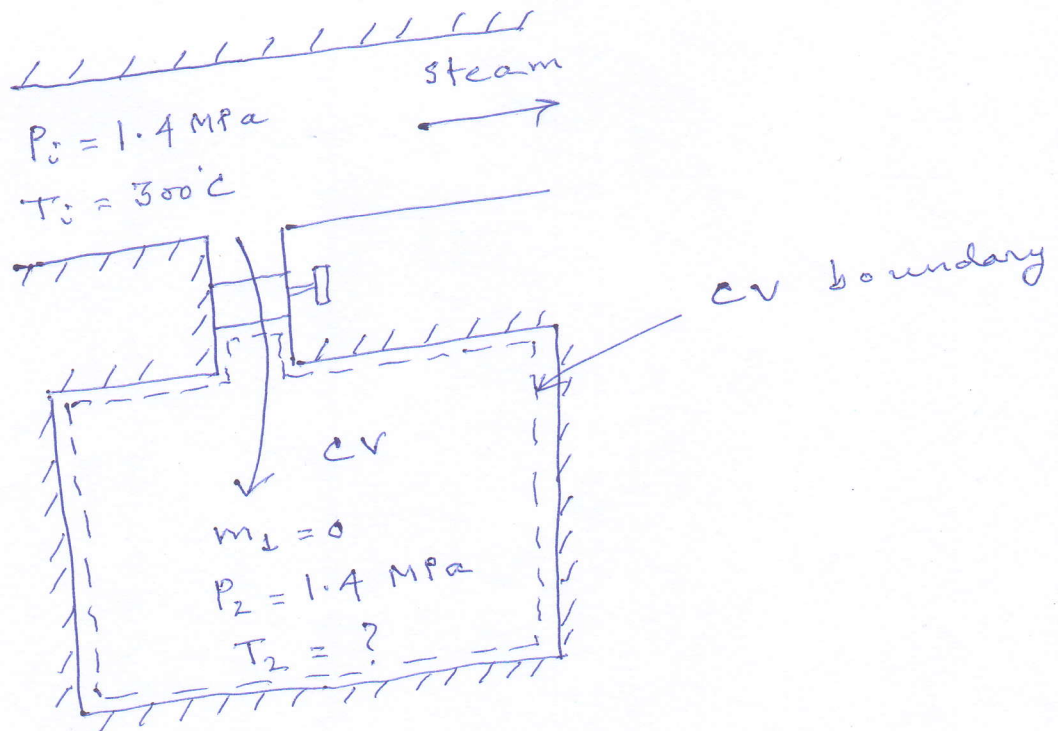 steam
Pi = 1.4 MPa
Ti = 300°C
CV boundary
CV
m1 = 0
P2 = 1.4 MPa
T2 = ?